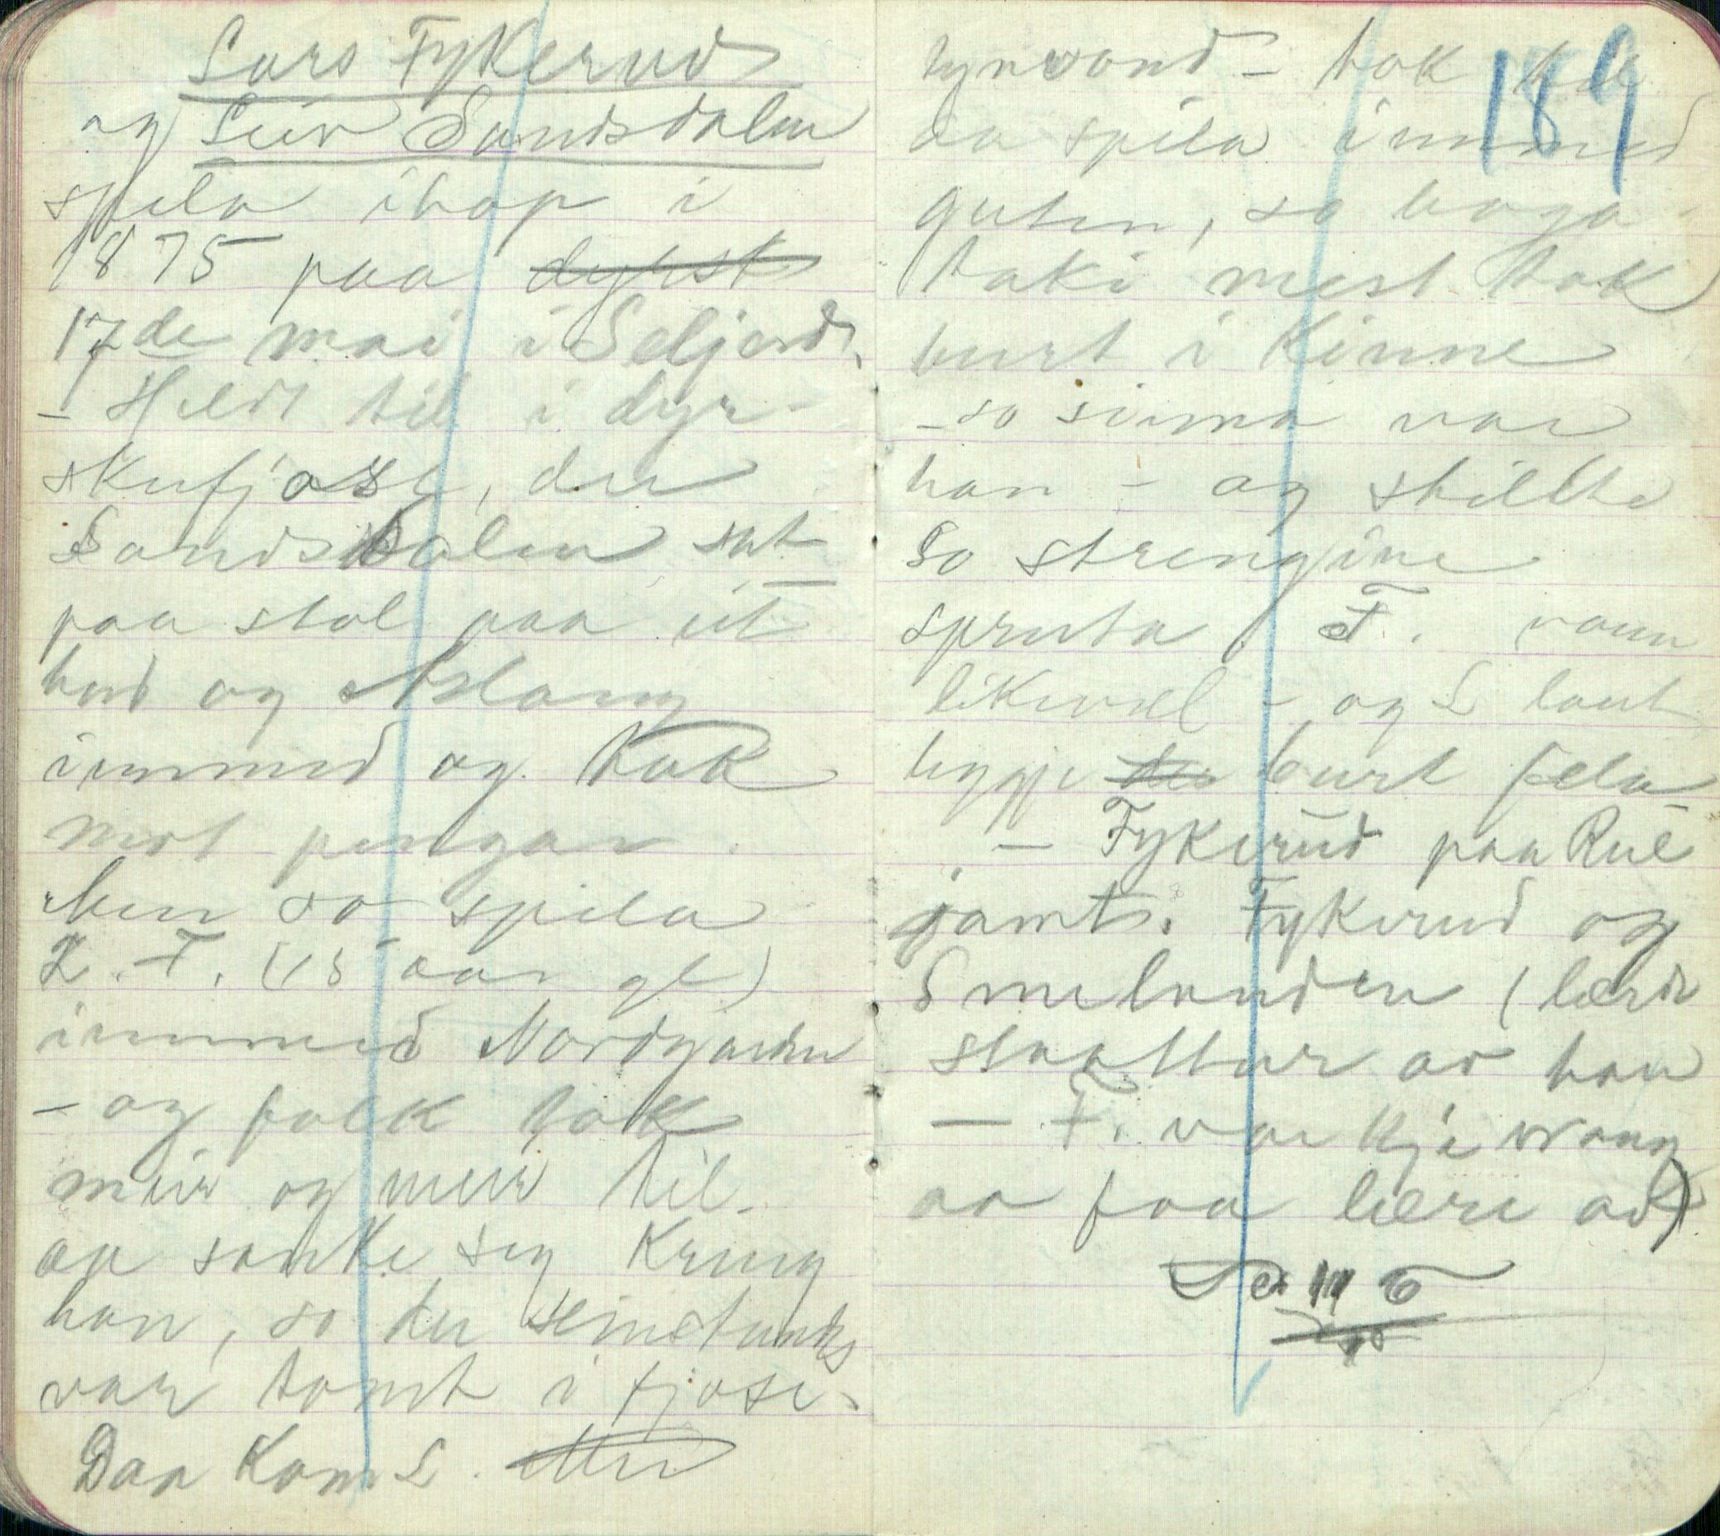 Lars Fykerud
og Leiv Sandsdalen
spela ihop i
1875 paa dyrsk
17de mai i Seljord.
- Heldt til i dyr-
skufjose, der
Sandsdalen sat
paa stol aaa ut
hud og Aslaug
immed og tok
mot pengar.
Men so spela
L. F. (15 aar gl)
immed Nordgarden
- og folk tok
meir og meir til
aa sanke seg kring
han, so der seinstundes
var tomt i fjose.
Daa kom L.
189
tynvond - tok til
aa spela immed
guten, so boga
taki mest tok
burt i Kinne
- so sinna var
han - og stillte
so strengine
spruta. F. vann
likevæl - og L laut
leggje burt fela
- Fykerud paa Rue
jamt. Fykerud og
Smelanden (lærde
slaattar av han
- F. var kje vrang
aa faa lære av)